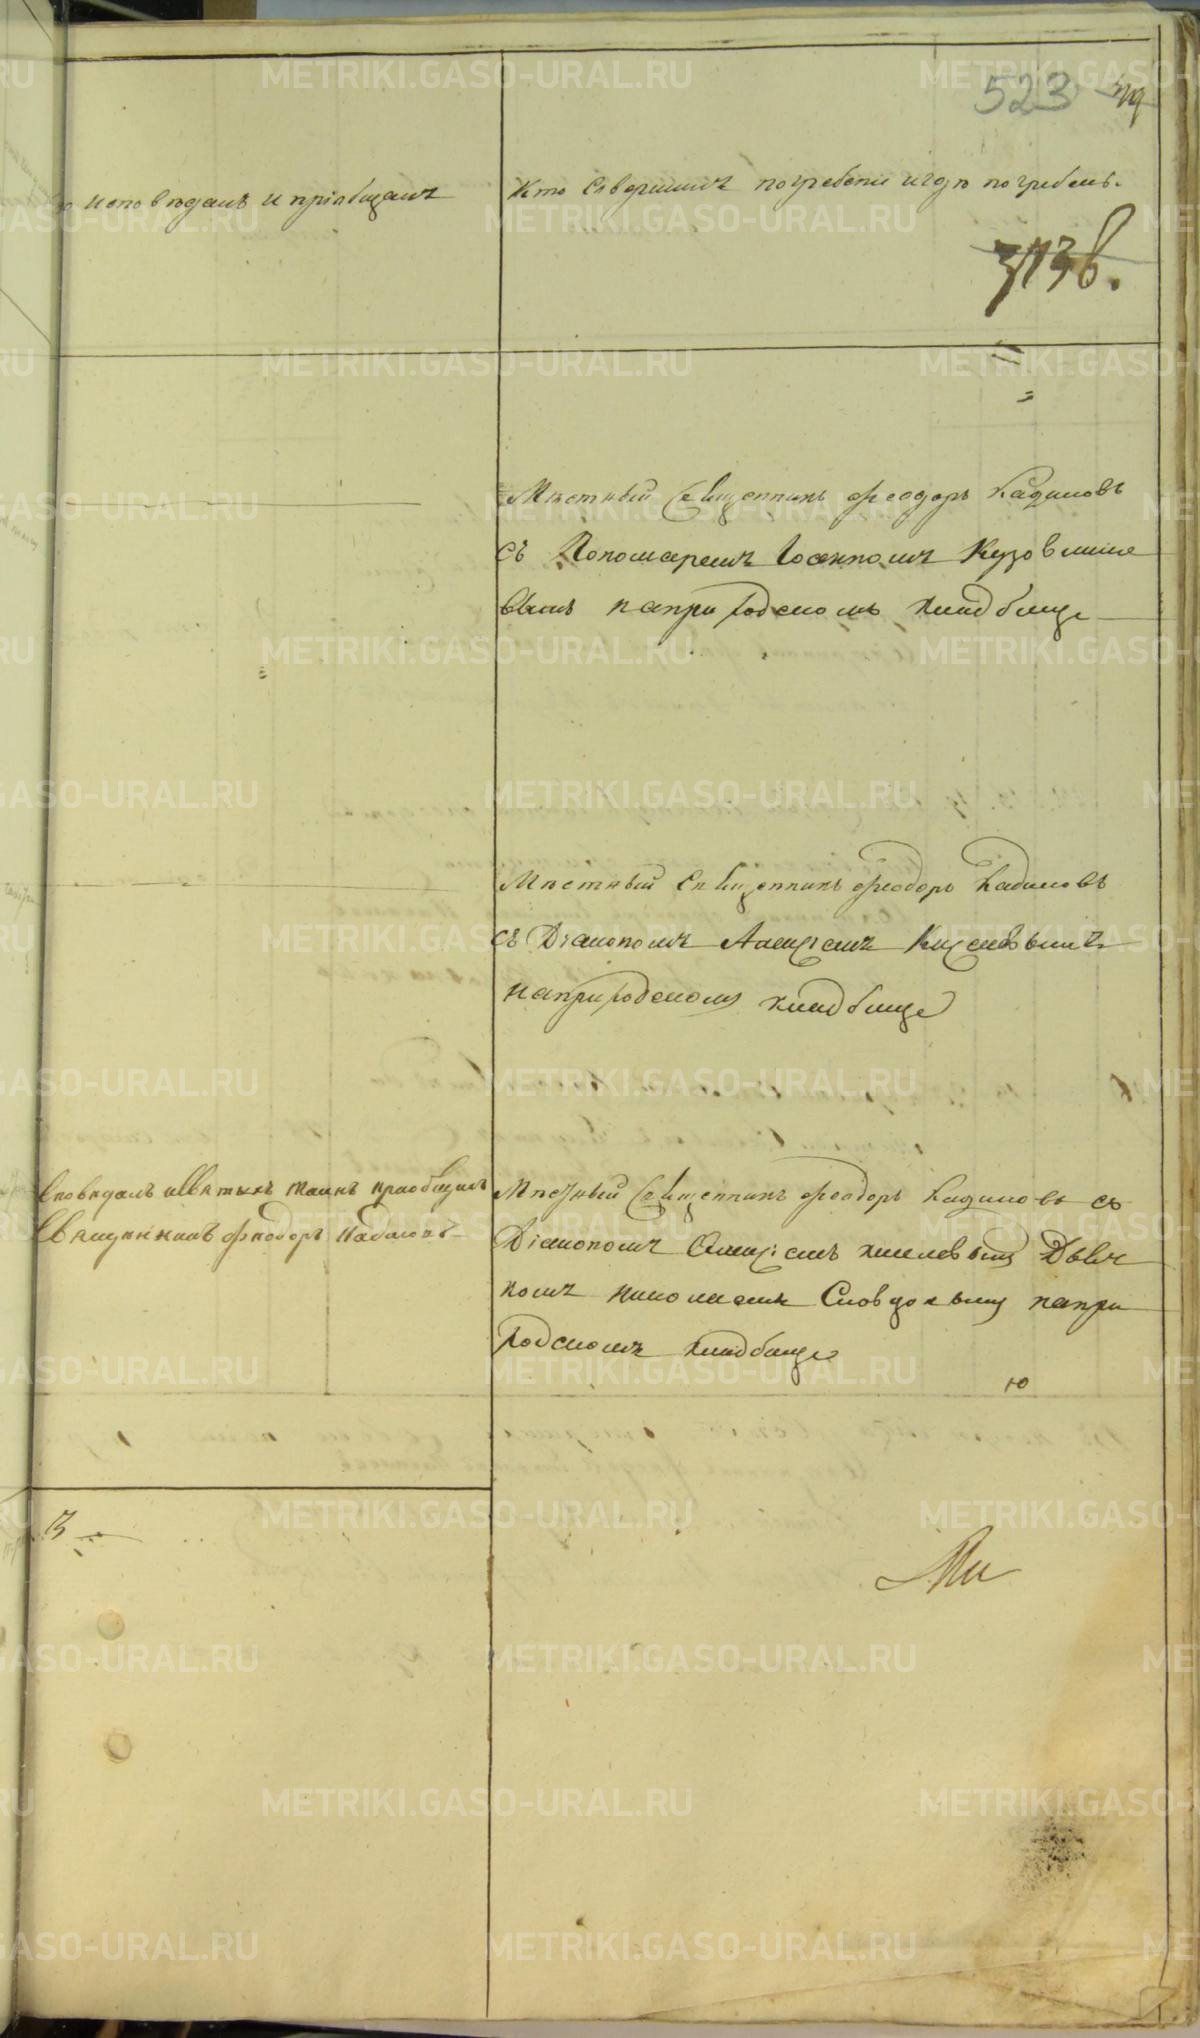 METRIKI.GASO-URAL.RU
523
исповѣдалъ и пріобщалъ
Кто совершилъ погребени и гдѣ погребенъ.
Мѣстный Священникъ Феодоръ Кадиловъ
съ Пономаремъ Іоанномъ
вымъ на приходскомъ кладбище
Мѣстный Священникъ Феодоръ Кадиловъ
съ Діакономъ Алексіемъ
на приходскомъ кладбище
споведалъ и Святыхъ таинъ приобщилъ
Священникъ Феодоръ Кадиловъ
Мѣстный Священникъ Феодоръ Кадиловъ съ
Діакономъ Алексіемъ Дьяч
комъ Николаемъ на при
ходскомъ кладбище